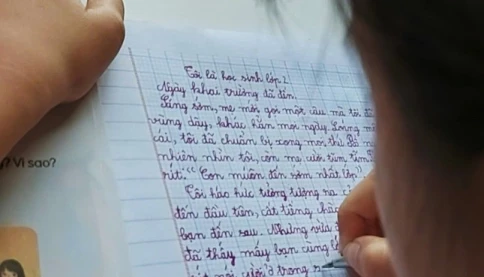 Tôi là học sinh lớp 2
Ngày khai trường đã đến.
Sáng sớm, mẹ mới gọi một câu mà tôi đã
vùng dậy, khác hẳn mọi ngày. Loáng một
cái, tôi đã chuẩn bị xong mọi thứ. Bố
nhiên nhìn tôi, còn mẹ cười tủm tỉm
rít: "Con muốn đến sớm nhất lớp"
Tôi háo hức tưởng tượng ra
đến đầu tiên, cất tiếng chào
bạn đến sau. Nhưng vừa
đã thấy mấy bạn cùng
cười ở trong
? Vì sao?